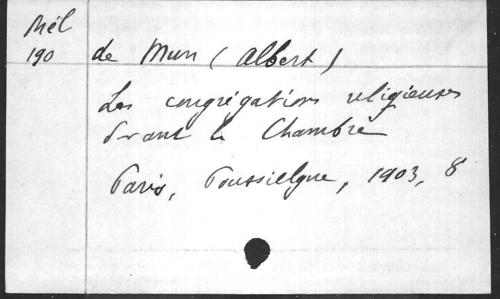 Mél
190 de Mun (Albert)
Les congrégations religieuses
devant la Chambre
Paris, Poussielgue, 1903, 8°